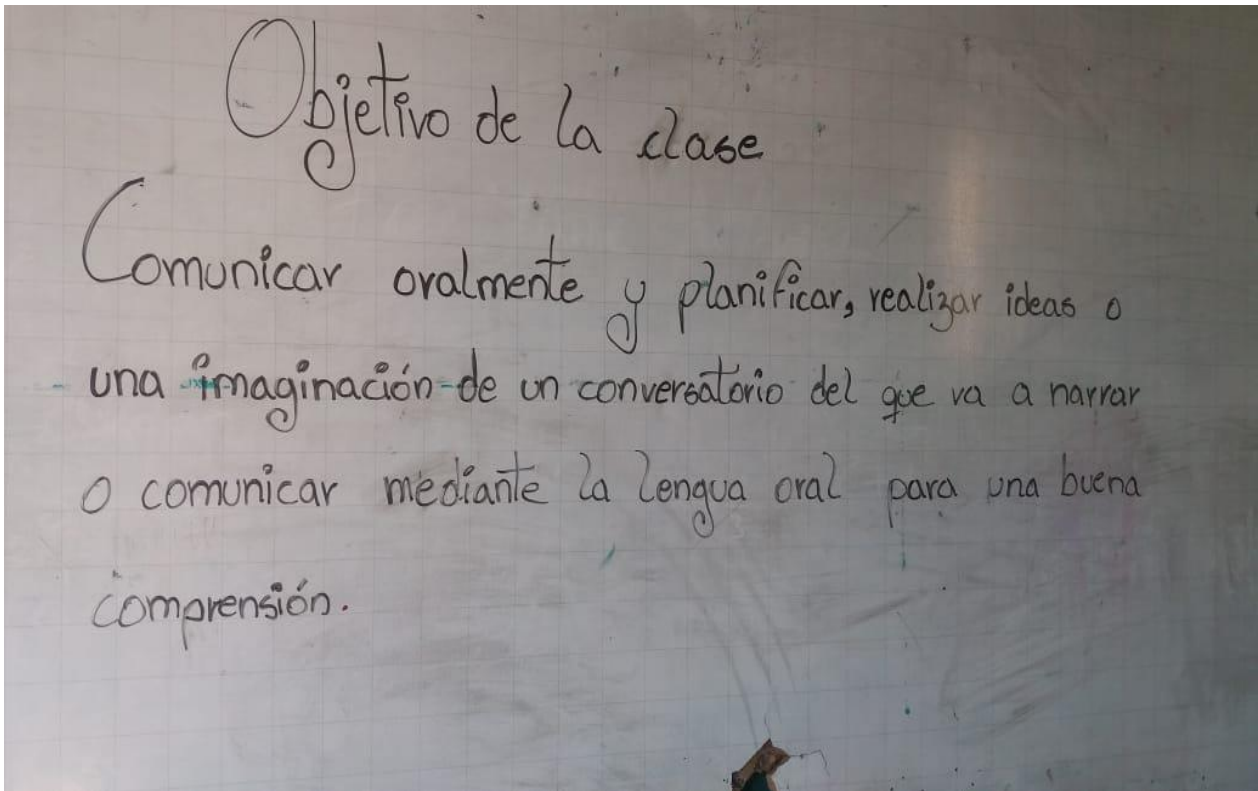 Objetivo de la clase
Comunicar oralmente y planificar, realizar ideas o
una imaginación de un conversatorio del que va a narrar
o comunicar mediante la lengua oral para una buena
comprensión.